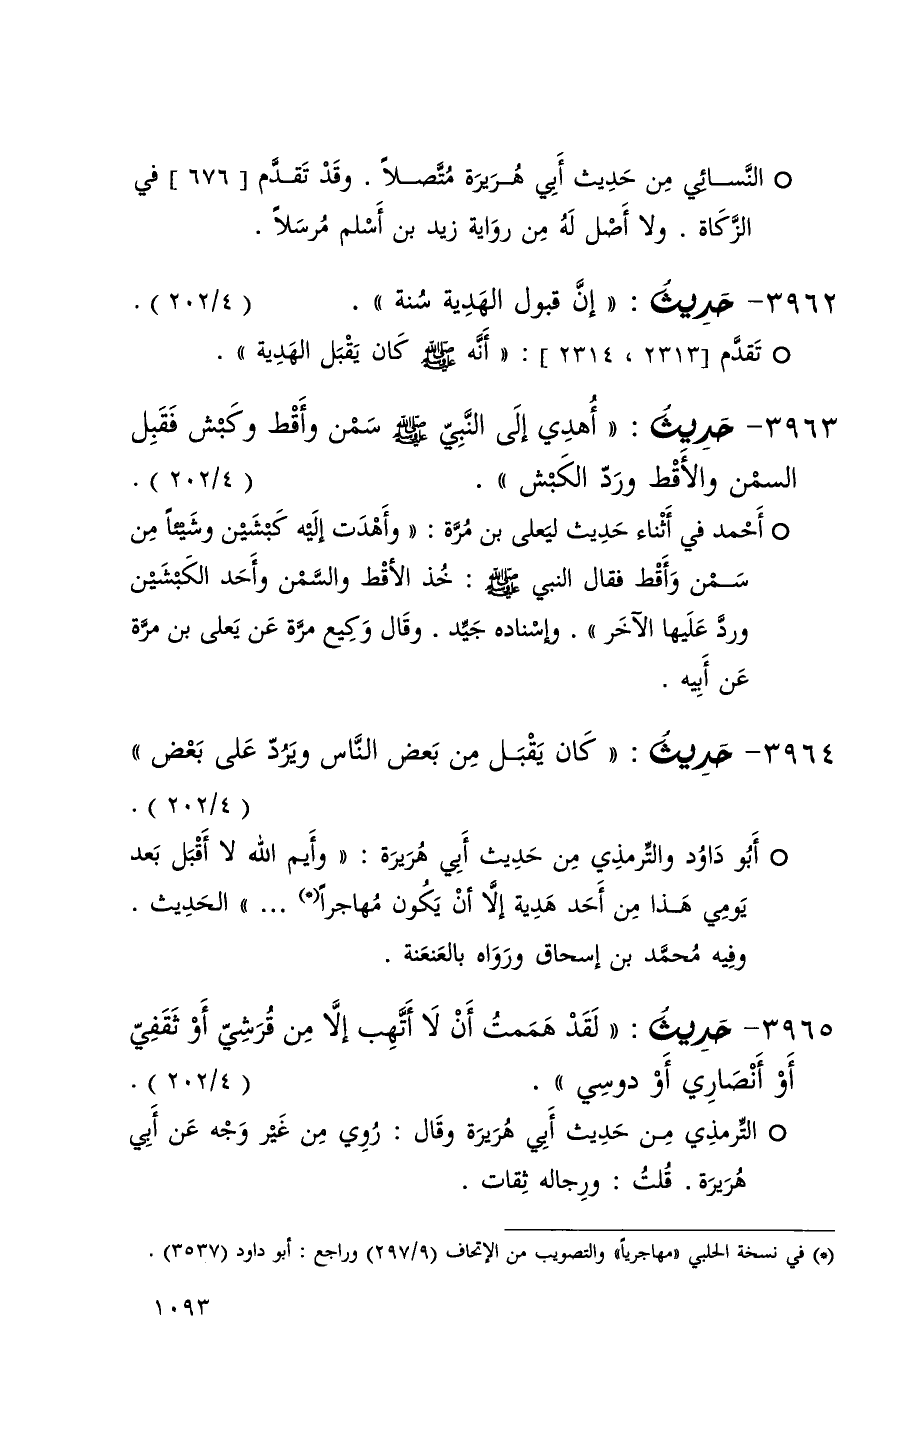 ○ النَّسـائِي مِن حَدِيث أَبِي هُـرَيرَة مُتَّصـلاً . وقَدْ تَقـدَّم [ ٦٧٦ ] في
الزَّكَاة . ولا أَصْل لَهُ مِن روَاية زيد بن أَسْلم مُرسَلاً .
٣٩٦٢- حَدِيثُ : « إنَّ قبول الهَدِية سُنة » . ( ٢٠٢/٤ ) .
○ تَقدَّم [٢٣١٣ ، ٢٣١٤ ] : « أَنَّه ﷺ كَان يَقْبَل الهَدِية » .
٣٩٦٣- حَدِيثُ : « أُهدِي إلَى النَّبِيّ ﷺ سَمْن وأَقْط وكَبْش فَقَبِل
السمْن والأَقْط ورَدّ الكَبْش » . ( ٢٠٢/٤ ) .
○ أَحْمد في أَثْناء حَدِيث ليَعلى بن مُرَّة : « وأَهْدَت إلَيْه كَبْشَيْن وشَيْئاً مِن
سَـمْن وَأَقْط فقال النبي ﷺ : خُذ الأقْط والسَّمْن وأَحَد الكَبْشَيْن
وردَّ عَلَيها الآخَر » . وإسْناده جَيِّد . وقَال وَكِيع مرَّة عَن يَعلى بن مرَّة
عَن أَبِيه .
٣٩٦٤- حَدِيثُ : « كَان يَقْبَـل مِن بَعض النَّاس ويَرُدّ عَلى بَعْض »
( ٢٠٢/٤ ) .
○ أَبُو دَاوُد والتِّرمذِي مِن حَدِيث أَبِي هُرَيرَة : « وأَيم الله لا أَقْبَل بَعد
يَومِي هَـذا مِن أَحَد هَدِية إلَّا أنْ يَكُون مُهاجراً(*) ... » الحَدِيث .
وفِيه مُحمَّد بن إسحاق ورَوَاه بالعَنعَنة .
٣٩٦٥- حَدِيثُ : « لَقَدْ هَمَمتُ أَنْ لَا أَتَّهِب إلَّا مِن قُرَشِيّ أَوْ ثَقَفِيّ
أَوْ أَنْصَارِي أَوْ دوسِي » . ( ٢٠٢/٤ ) .
○ التِّرمذِي مِـن حَدِيث أَبِي هُرَيرَة وقَال : رُوِي مِن غَيْر وَجْه عَن أَبِي
هُرَيرَة . قُلتُ : ورِجاله ثِقات .
(*) في نسخة الحلبي «مهاجرياً» والتصويب من الإتحاف (٢٩٧/٩) وراجع : أبو داود (٣٥٣٧) .
١٠٩٣